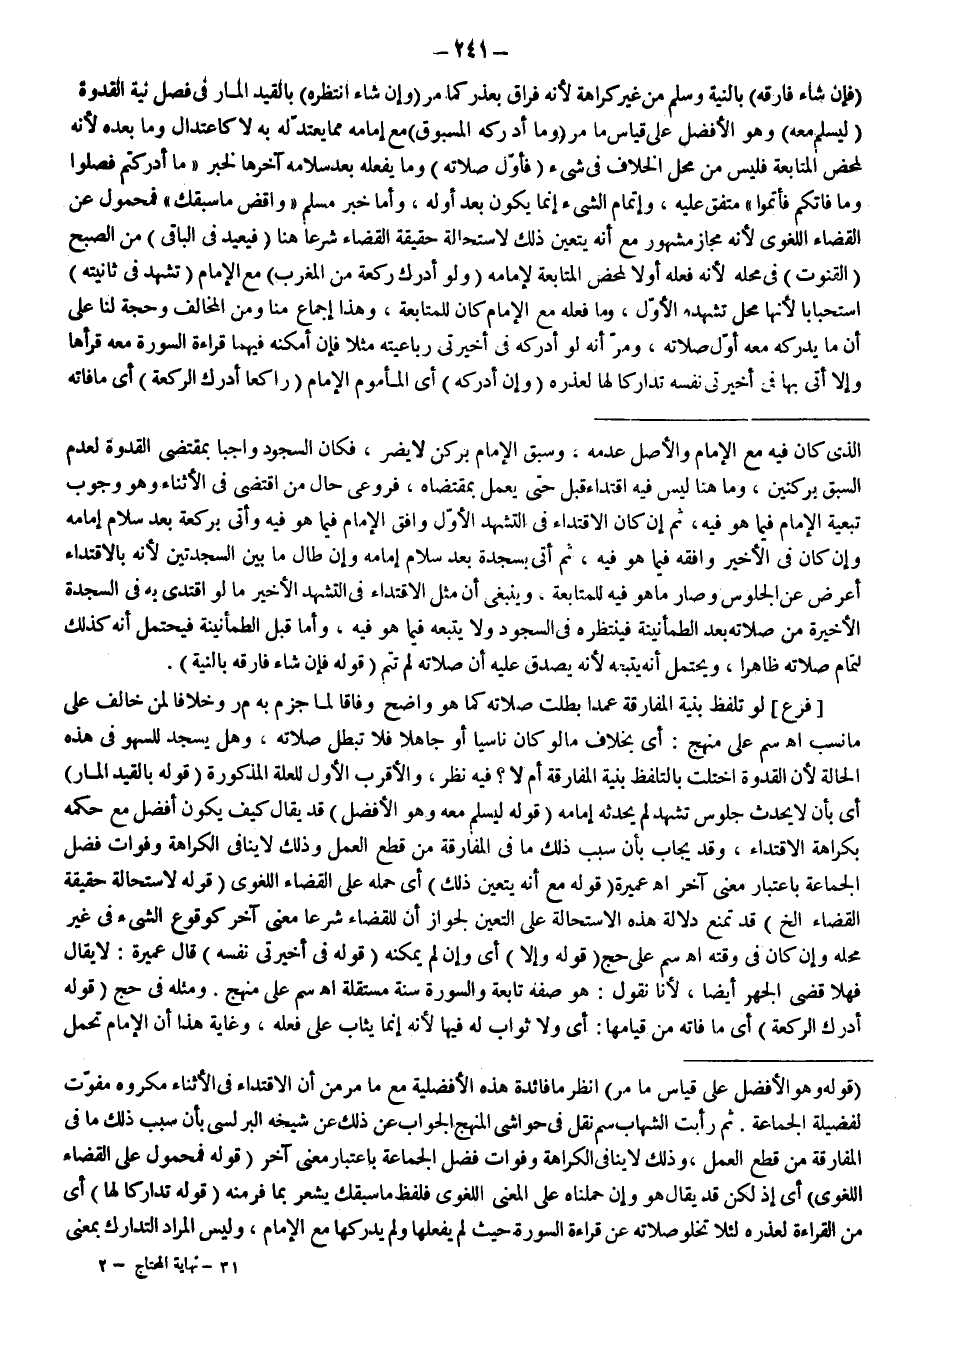 – ٢٤١ –
(فإن شاء فارقه) بالنية وسلم من غير كراهة لأنه فراق بعذر كما مر (وإن شاء انتظره) بالقيد المار فى فصل نية القدوة
( ليسلم معه) وهو الأفضل على قياس ما مر (وما أدركه المسبوق) مع إمامه مما يعتدّ له به لا كاعتدال وما بعده لأنه
لمحض المتابعة فليس من محل الخلاف فى شىء ( فأوّل صلاته ) وما يفعله بعد سلامه آخرها لخبر « ما أدركتم فصلوا
وما فاتكم فأتموا» متفق عليه ، وإتمام الشىء إنما يكون بعد أوله ، وأما خبر مسلم « واقض ماسبقك» فمحمول عن
القضاء اللغوى لأنه مجاز مشهور مع أنه يتعين ذلك لاستحالة حقيقة القضاء شرعا هنا ( فيعيد فى الباقى ) من الصبح
( القنوت ) فى محله لأنه فعله أولا لمحض المتابعة لإمامه ( ولو أدرك ركعة من المغرب) مع الإمام ( تشهد فى ثانيته )
استحبابا لأنها محل تشهده الأوّل ، وما فعله مع الإمام كان للمتابعة ، وهذا إجماع منا ومن المخالف وحجة لنا على
أن ما يدركه معه أوّل صلاته ، ومرّ أنه لو أدركه فى أخيرتى رباعيته مثلا فإن أمكنه فيهما قراءة السورة معه قرأها
وإلا أتى بها فى أخيرتى نفسه تداركا لها لعذره ( وإن أدركه ) أى المأموم الإمام ( راكعا أدرك الركعة ) أى مافاته
الذى كان فيه مع الإمام والأصل عدمه ، وسبق الإمام بركن لايضر ، فكان السجود واجبا بمقتضى القدوة لعدم
السبق بركنين ، وما هنا ليس فيه اقتداء قبل حتى يعمل بمقتضاه ، فروعى حال من اقتضى فى الأثناء وهو وجوب
تبعية الإمام فيما هو فيه ، ثم إن كان الاقتداء فى التشهد الأوّل وافق الإمام فيما هو فيه وأتى بركعة بعد سلام إمامه
وإن كان فى الأخير وافقه فيما هو فيه ، ثم أتى بسجدة بعد سلام إمامه وإن طال ما بين السجدتين لأنه بالاقتداء
أعرض عن الجلوس وصار ماهو فيه للمتابعة . وينبغى أن مثل الاقتداء فى التشهد الأخير ما لو اقتدى به فى السجدة
الأخيرة من صلاته بعد الطمأنينة فينتظره فى السجود ولا يتبعه فيما هو فيه ، وأما قبل الطمأنينة فيحتمل أنه كذلك
لتمام صلاته ظاهرا ، ويحتمل أنه يتبعه لأنه يصدق عليه أن صلاته لم تتم ( قوله فإن شاء فارقه بالنية ) .
[ فرع ] لو تلفظ بنية المفارقة عمدا بطلت صلاته كما هو واضح وفاقا لما جزم به مر وخلافا لمن خالف على
مانسب اه سم على منهج : أى بخلاف مالو كان ناسيا أو جاهلا فلا تبطل صلاته ، وهل يسجد للسهو فى هذه
الحالة لأن القدوة اختلت بالتلفظ بنية المفارقة أم لا ؟ فيه نظر ، والأقرب الأول للعلة المذكورة ( قوله بالقيد المار)
أى بأن لايحدث جلوس تشهد لم يحدثه إمامه ( قوله ليسلم معه وهو الأفضل ) قد يقال كيف يكون أفضل مع حكمه
بكراهة الاقتداء ، وقد يجاب بأن سبب ذلك ما فى المفارقة من قطع العمل وذلك لاينافى الكراهة وفوات فضل
الجماعة باعتبار معنى آخر اه عميرة ( قوله مع أنه يتعين ذلك ) أى حمله على القضاء اللغوى ( قوله لاستحالة حقيقة
القضاء الخ ) قد تمنع دلالة هذه الاستحالة على التعين لجواز أن للقضاء شرعا معنى آخر كوقوع الشىء فى غير
محله وإن كان فى وقته اه سم على حج ( قوله وإلا ) أى وإن لم يمكنه ( قوله فى أخيرتى نفسه ) قال عميرة : لايقال
فهلا قضى الجهر أيضا ، لأنا نقول : هو صفه تابعة والسورة سنة مستقلة اه سم على منهج . ومثله فى حج ( قوله
أدرك الركعة ) أى ما فاته من قيامها : أى ولا ثواب له فيها لأنه إنما يثاب على فعله ، وغاية هذا أن الإمام تحمل
(قوله وهو الأفضل على قياس ما مر) انظر مافائدة هذه الأفضلية مع ما مر من أن الاقتداء فى الأثناء مكروه مفوّت
لفضيلة الجماعة . ثم رأيت الشهاب سم نقل فى حواشى المنهج الجواب عن ذلك عن شيخه البرلسى بأن سبب ذلك ما فى
المفارقة من قطع العمل ، وذلك لاينافى الكراهة وفوات فضل الجماعة باعتبار معنى آخر ( قوله فمحمول على القضاء
اللغوى) أى إذ لكن قد يقال هو وإن حملناه على المعنى اللغوى فلفظ ماسبقك يشعر بما فر منه ( قوله تداركا لها ) أى
من القراءة لعذره لئلا تخلو صلاته عن قراءة السورة حيث لم يفعلها ولم يدركها مع الإمام ، وليس المراد التدارك بمعنى
٣١ – نهاية المحتاج – ٢